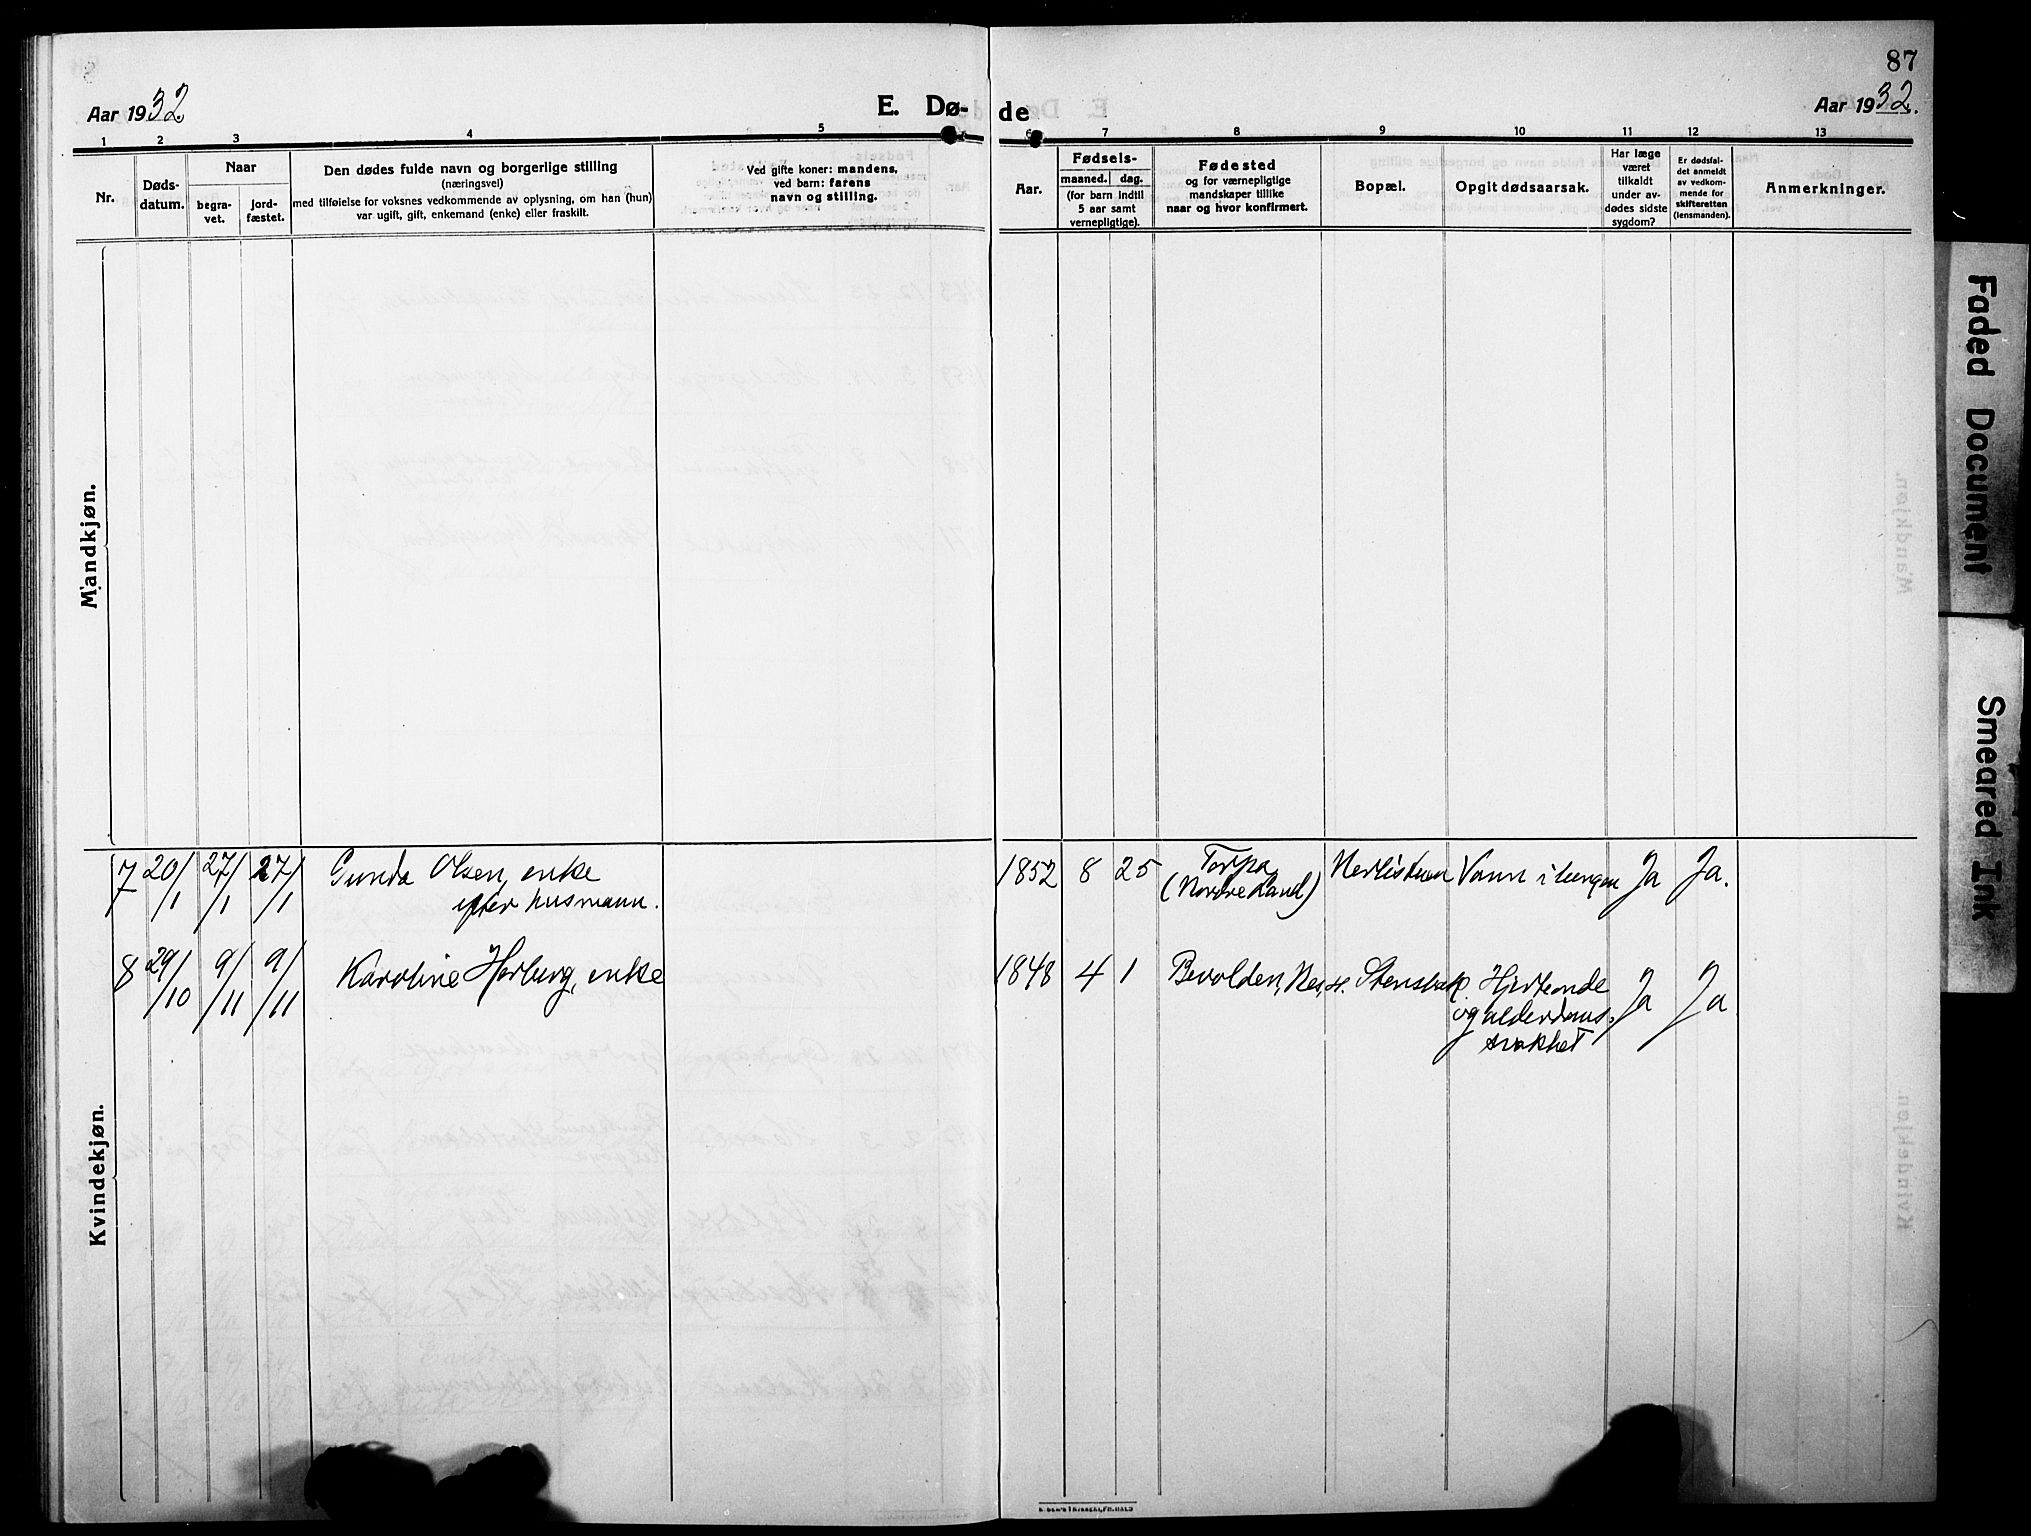 87
Aar 1932
E. Dø-
de
Aar 1932.
1 2 3 4 5 6 7 8 9 10 11 12 13
Nr.
Døds-
datum.
Naar
begra-
vet.
jord-
fæstet.
Den dødes fulde navn og borgerlige stilling
(næringsvei)
med tilføielse for voksnes vedkommende av oplysning, om han (hun)
var ugift, gift, enkemand (enke) eller fraskilt.
Ved gifte koner: mandens,
ved barn: farens
navn og stilling.
Aar.
Fødsels-
maaned. dag.
(for barn indtil
5 aar samt
vernepligtige).
Fødested
og for værnepligtige
mandskaper tillike
naar og hvor konfirmert.
Bopæl.
Opgit dødsaarsak.
Har læge
været
tilkaldt
under av-
dødes sidste
sygdom?
Er dødsfal-
det anmeldt
av vedkom-
mende for
skifteretten
(lensmanden).
Anmerkninger.
Mandkjøn.
Kvindekjøn.
7 20/1 27/1 27/1 Gunda Olsen, enke
efter husmann.
1852 8 25 Torpa
(Nordre Land)
Vann i lungen Ja Ja.
8 29/10 9/11 9/11 Karoline Horberg, enke
1848 4 1 Bevolden, Nes, H. Stensbak Hjerteonde
og alderdoms-
svakhet
Ja Ja
Faded Document
Smeared Ink